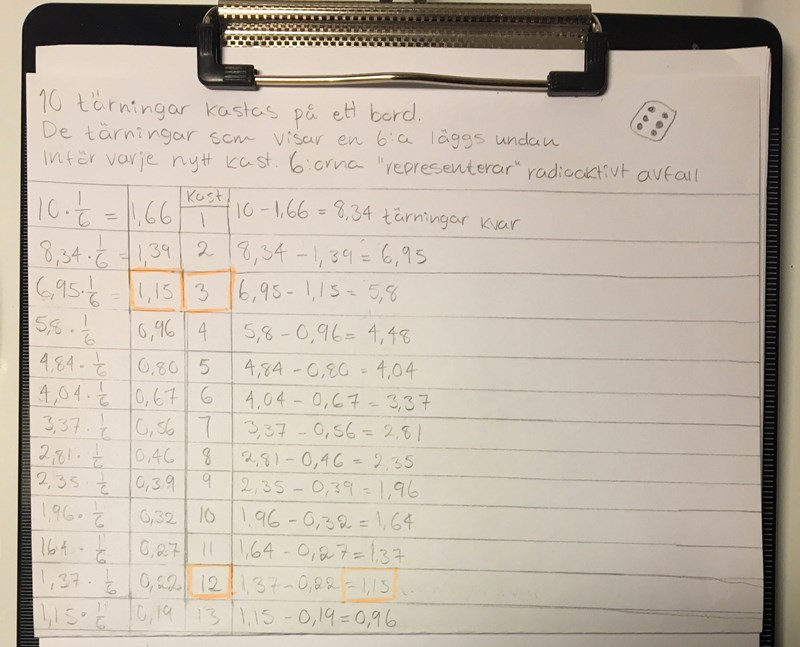 10 tärningar kastas på ett bord.
De tärningar som visar en 6:a läggs undan
inför varje nytt kast. 6:orna "representerar" radioaktivt avfall
Kast
10 · 1/6 = 1,66 1 10 - 1,66 = 8,34 tärningar kvar
8,34 · 1/6 = 1,39 2 8,34 - 1,39 = 6,95
6,95 · 1/6 = 1,15 3 6,95 - 1,15 = 5,8
5,8 · 1/6 0,96 4 5,8 - 0,96 = 4,48
4,84 · 1/6 0,80 5 4,84 - 0,80 = 4,04
4,04 · 1/6 0,67 6 4,04 - 0,67 = 3,37
3,37 · 1/6 0,56 7 3,37 - 0,56 = 2,81
2,81 · 1/6 0,46 8 2,81 - 0,46 = 2,35
2,35 · 1/6 0,39 9 2,35 - 0,39 = 1,96
1,96 · 1/6 0,32 10 1,96 - 0,32 = 1,64
1,64 · 1/6 0,27 11 1,64 - 0,27 = 1,37
1,37 · 1/6 0,22 12 1,37 - 0,22 = 1,15
1,15 · 1/6 0,19 13 1,15 - 0,19 = 0,96